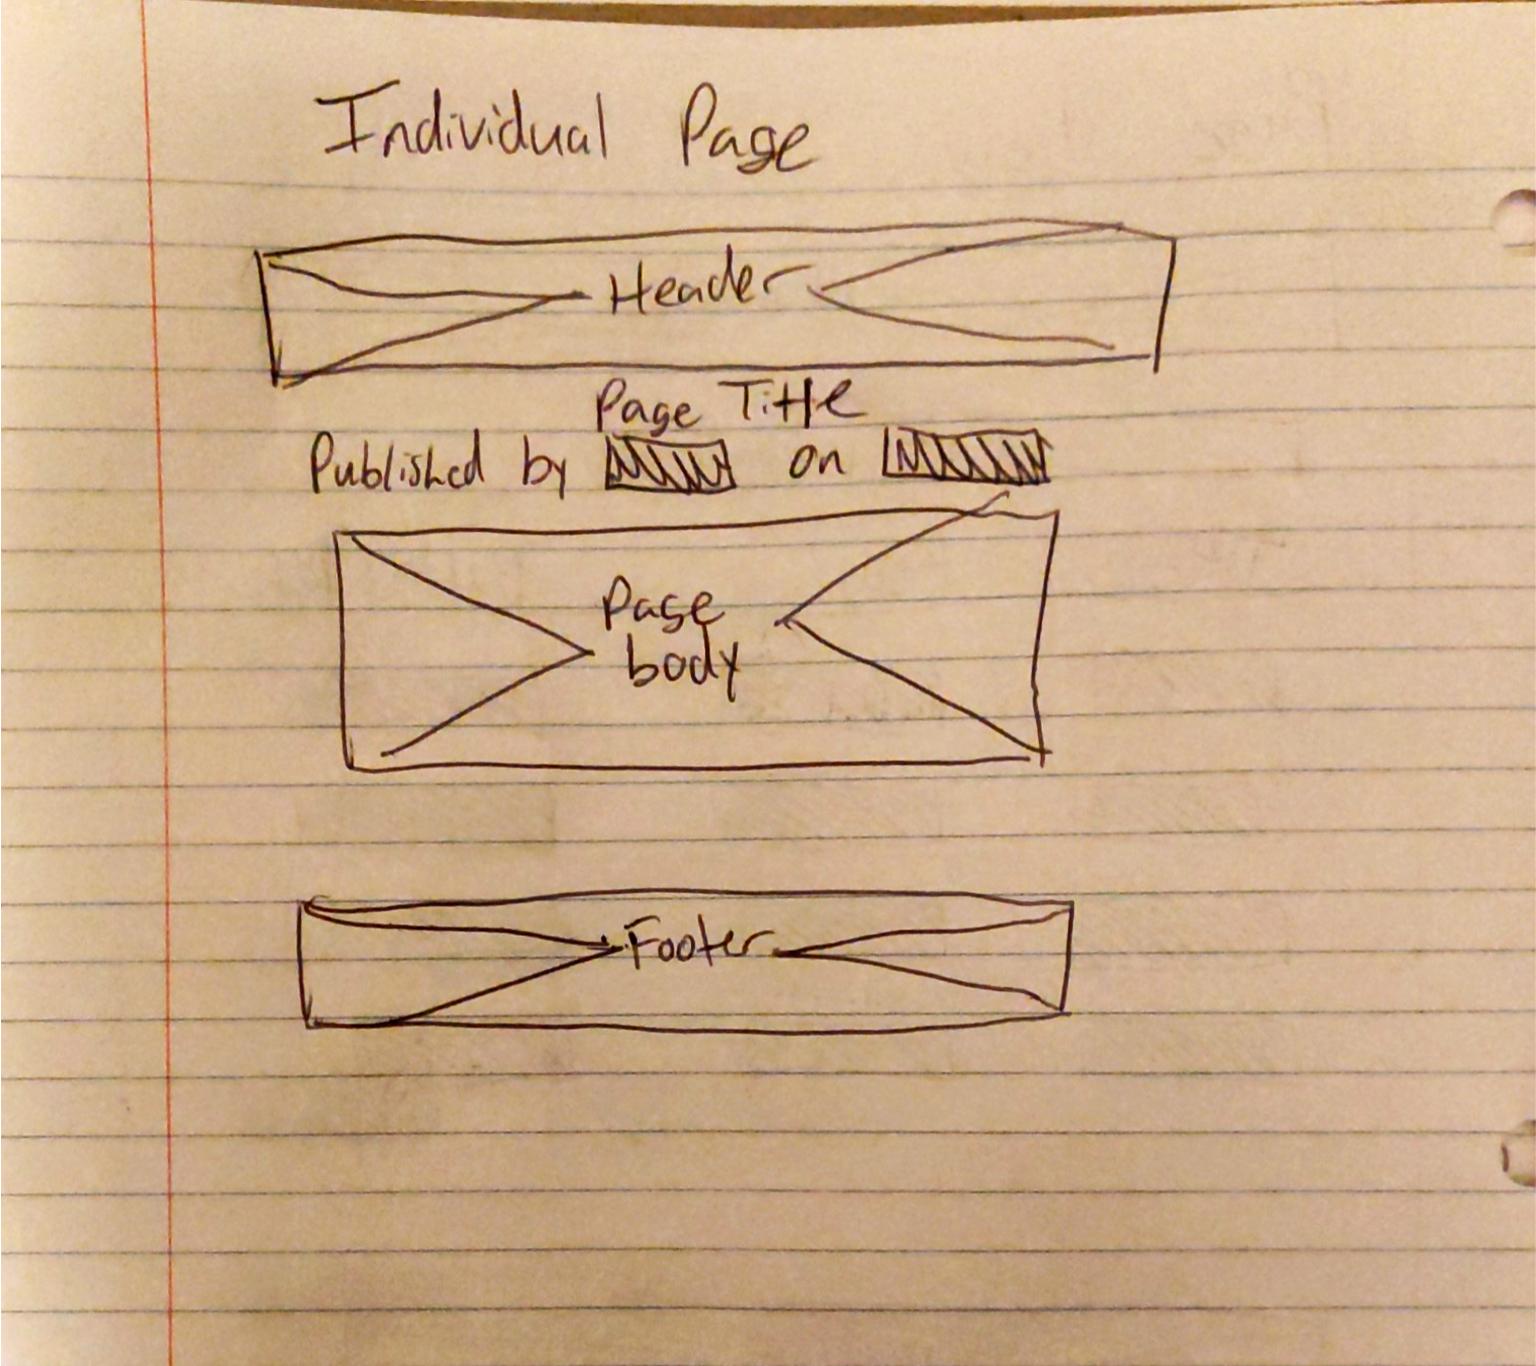 Individual Page
Header
Page Title
Published by on
Page
body
Footer